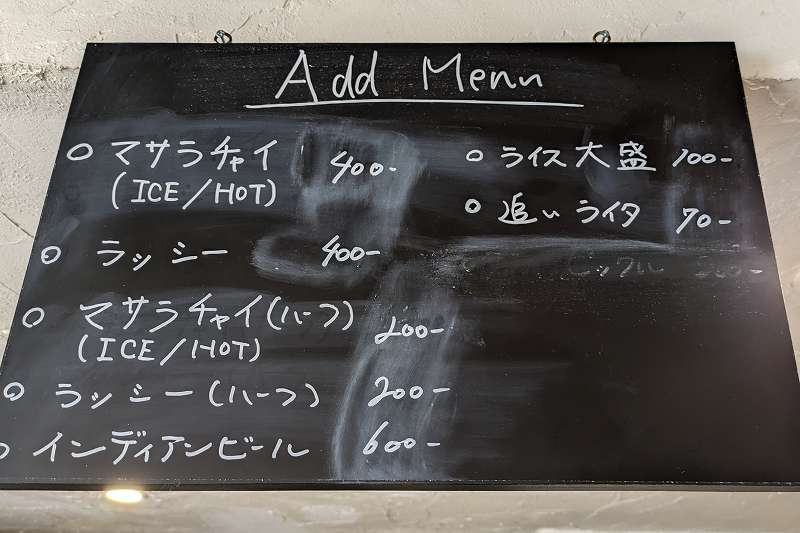 Add Menu
○ マサラチャイ 400-
(ICE/HOT)
○ ラッシー 400-
○ マサラチャイ(ハーフ) 200-
(ICE/HOT)
○ ラッシー(ハーフ) 200-
○ インディアンビール 600-
○ ライス大盛 100-
○ 追いライタ 70-